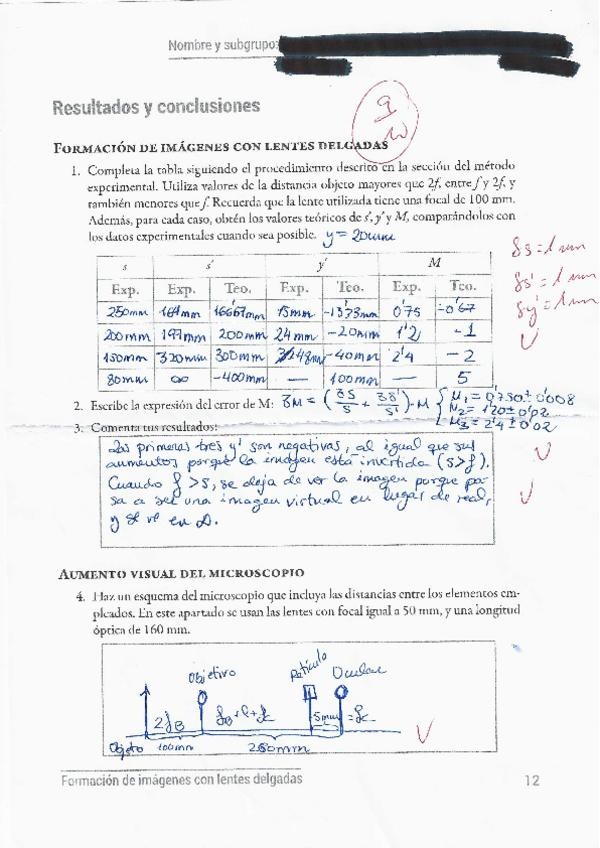 Nombre y subgrupo:
Resultados y conclusiones
9
10
FORMACIÓN DE IMÁGENES CON LENTES DELGADAS
1. Completa la tabla siguiendo el procedimiento descrito en la sección del método
experimental. Utiliza valores de la distancia objeto mayores que 2f, entre f y 2f, y
también menores que f. Recuerda que la lente utilizada tiene una focal de 100 mm.
Además, para cada caso, obtén los valores teóricos de s', y' y M, comparándolos con
los datos experimentales cuando sea posible. y = 20mm
s s' y' M
Exp. Exp. Teo. Exp. Teo. Exp. Teo.
250mm 164mm 166'67mm 15mm -13'33mm 0'75 -0'67
200mm 197mm 200mm 24mm -20mm 1'2 -1
150mm 320mm 300mm 48mm -40mm 2'4 -2
80mm ∞ -400mm — 100mm — 5
δs = 1 mm
δs' = 1 mm
δy' = 1 mm
2. Escribe la expresión del error de M: δM = (δs/s + δs'/s')·M { M1 = 0'750 ± 0'008
M2 = 1'20 ± 0'02
M3 = 2'4 ± 0'02
3. Comenta tus resultados:
Las primeras tres y' son negativas, al igual que sus
aumentos porque la imagen está invertida (s>f).
Cuando f>s, se deja de ver la imagen porque pa-
sa a ser una imagen virtual en lugar de real,
y se ve en ∞.
AUMENTO VISUAL DEL MICROSCOPIO
4. Haz un esquema del microscopio que incluya las distancias entre los elementos em-
pleados. En este apartado se usan las lentes con focal igual a 50 mm, y una longitud
óptica de 160 mm.
Objetivo Retículo Ocular
2fB fB+l+fc 5mm = fc
Objeto 100mm 260mm
Formación de imágenes con lentes delgadas 12